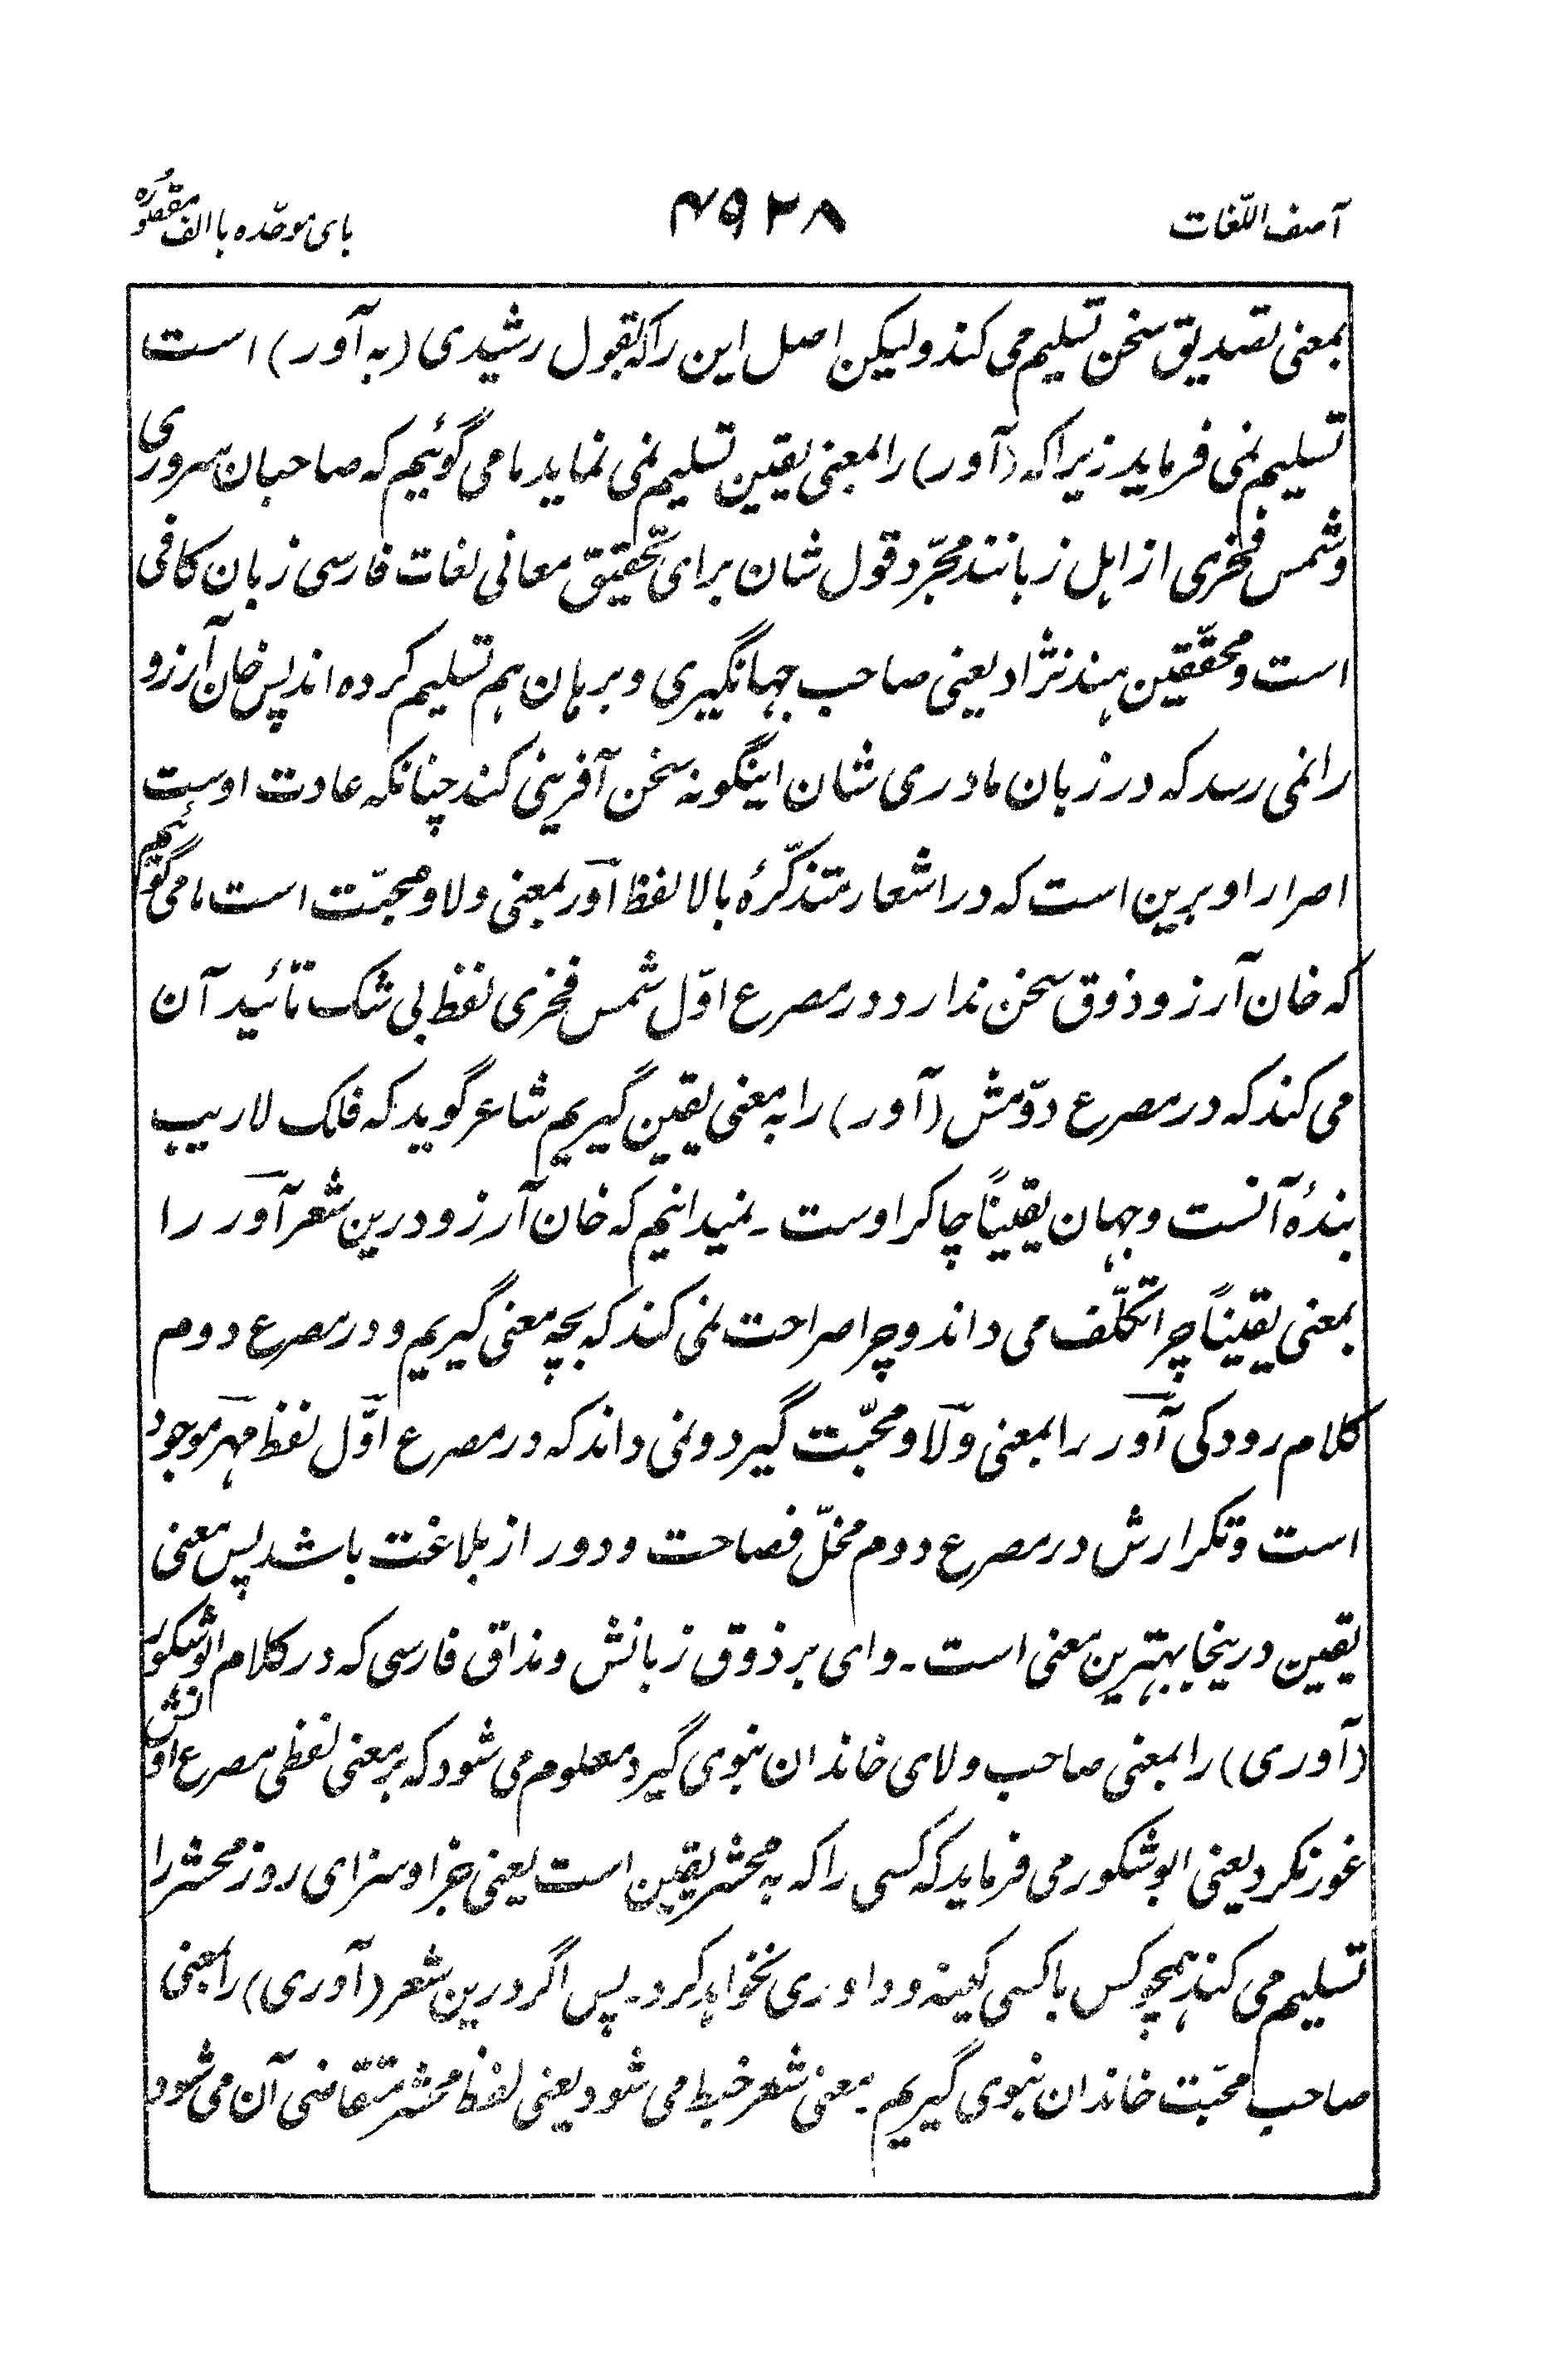 آصف اللّغات ۴۹۲۸ بای موحّده با الف مقصوره
بمعنی تصدیق سخن تسلیم می کند ولیکن اصل این را که بقول رشیدی (به آور) است
تسلیم نمی فرماید زیرا که (آور) را بمعنی یقین تسلیم نمی نماید ما می گوئیم که صاحبان سروری
و شمس فخری از اہل زبانند مجرّد قول شان برای تحقیق معانی لغات فارسی زبان کافی
است و محقّقین ہند نژاد یعنی صاحب جہانگیری و برہان ہم تسلیم کرده اند پس خان آرزو
را نمی رسد که در زبان مادری شان اینگونه سخن آفرینی کند چنانکه عادت اوست
اصرار او برین است که در اشعار متذکّرۂ بالا لفظ آور بمعنی ولا و محبّت است ما می گوئیم
که خان آرزو ذوق سخن ندارد در مصرع اوّل شمس فخری لفظ بی شک تائید آن
می کند که در مصرع دوّمش (آور) را به معنی یقین گیریم شاعر گوید که فلک لاریب
بندۂ آنست و جہان یقیناً چاکر اوست ۔ نمیدانیم که خان آرزو درین شعر آور را
بمعنی یقیناً چرا تکلّف می داند و چرا صراحت نمی کند که بچه معنی گیریم و در مصرع دوم
کلام رودکی آور را بمعنی ولا و محبّت گیرد و نمی داند که در مصرع اوّل لفظ مہر موجود
است و تکرارش در مصرع دوم مخلّ فصاحت و دور از بلاغت باشد پس معنی
یقین درینجا بہترین معنی است ۔ وای بر ذوق زبانش و مذاق فارسی که در کلام ابوشکور
(آوری) را بمعنی صاحب ولای خاندان نبوی گیرد معلوم می شود که بر معنی لفظی مصرع اوّلش
غور نکرد یعنی ابوشکور می فرماید که کسی را که به محشر یقین است یعنی جزا و سزای روز محشر را
تسلیم می کند ہمچو کس با کسی کینه و داوری نخواہد کرد ۔ پس اگر درین شعر (آوری) را بمعنی
صاحب محبّت خاندان نبوی گیریم معنی شعر خبط می شود یعنی لفظ محشر متقاضی آن می شود